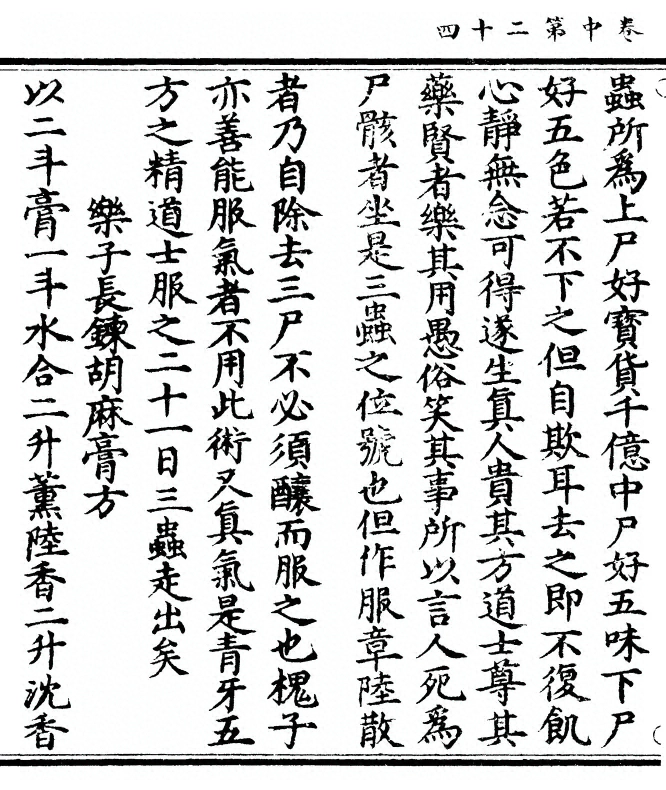 卷中第二十四
蟲所爲上尸好寶貨千億中尸好五味下尸
好五色若不下之但自欺耳去之即不復飢
心靜無念可得遂生真人貴其方道士尊其
藥賢者樂其用愚俗笑其事所以言人死爲
尸骸者坐是三蟲之位號也但作服章陸散
者乃自除去三尸不必須釀而服之也槐子
亦善能服氣者不用此術又真氣是青牙五
方之精道士服之二十一日三蟲走出矣
樂子長鍊胡麻膏方
以二斗膏一斗水合二升薰陸香二升沈香